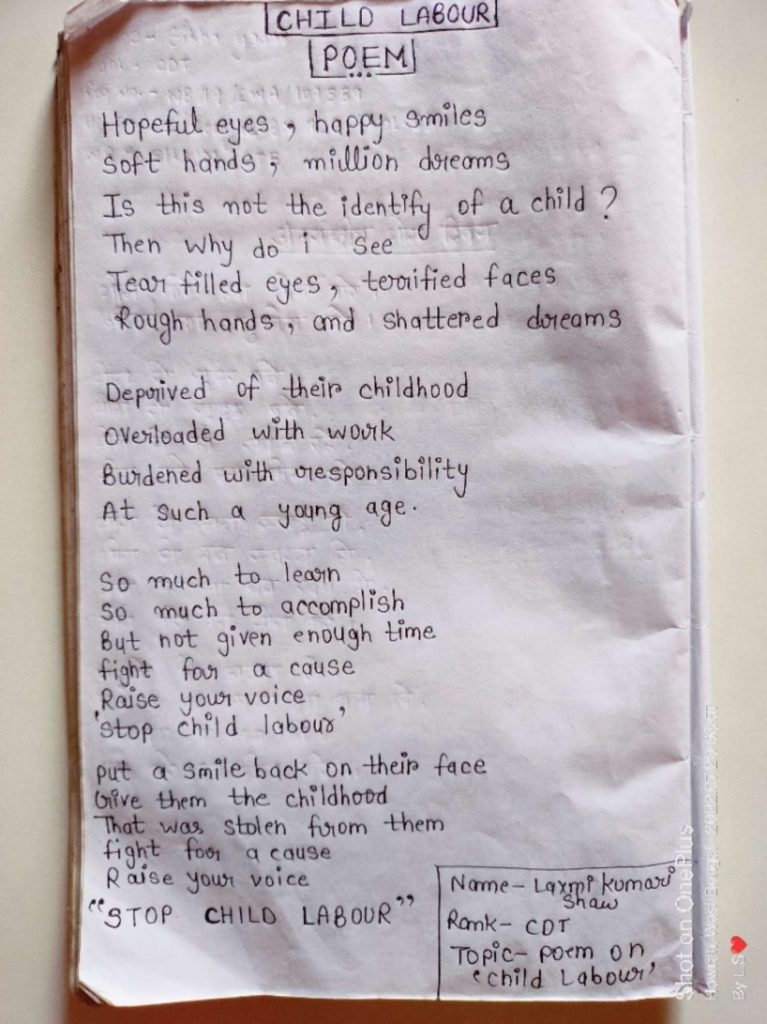 CHILD LABOUR
POEM
Hopeful eyes, happy smiles
Soft hands, million dreams
Is this not the identify of a child?
Then why do i see
Tear filled eyes, terrified faces
Rough hands, and shattered dreams
Deprived of their childhood
Overloaded with work
Burdened with responsibility
At such a young age.
So much to learn
So much to accomplish
But not given enough time
fight for a cause
Raise your voice
'stop child labour'
put a smile back on their face
Give them the childhood
That was stolen from them
fight for a cause
Raise your voice
"STOP CHILD LABOUR"
Name- Laxmi Kumari
Shaw
Rank- CDT
Topic- poem on
'child Labour'
Shot on OnePlus
By LS❤